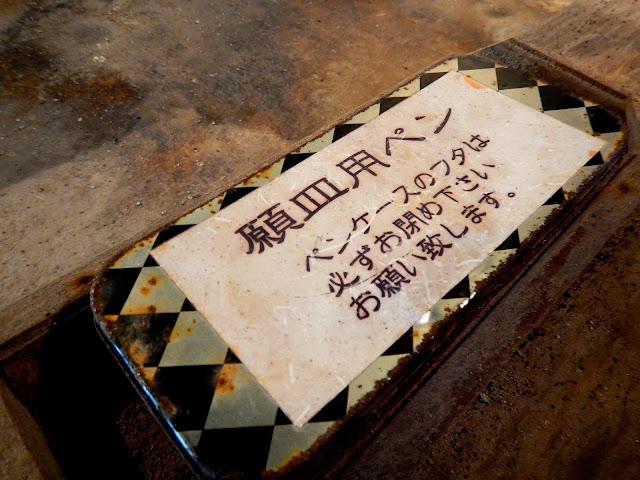 願皿用ペン
ペンケースのフタは
必ずお閉め下さい
お願い致します。